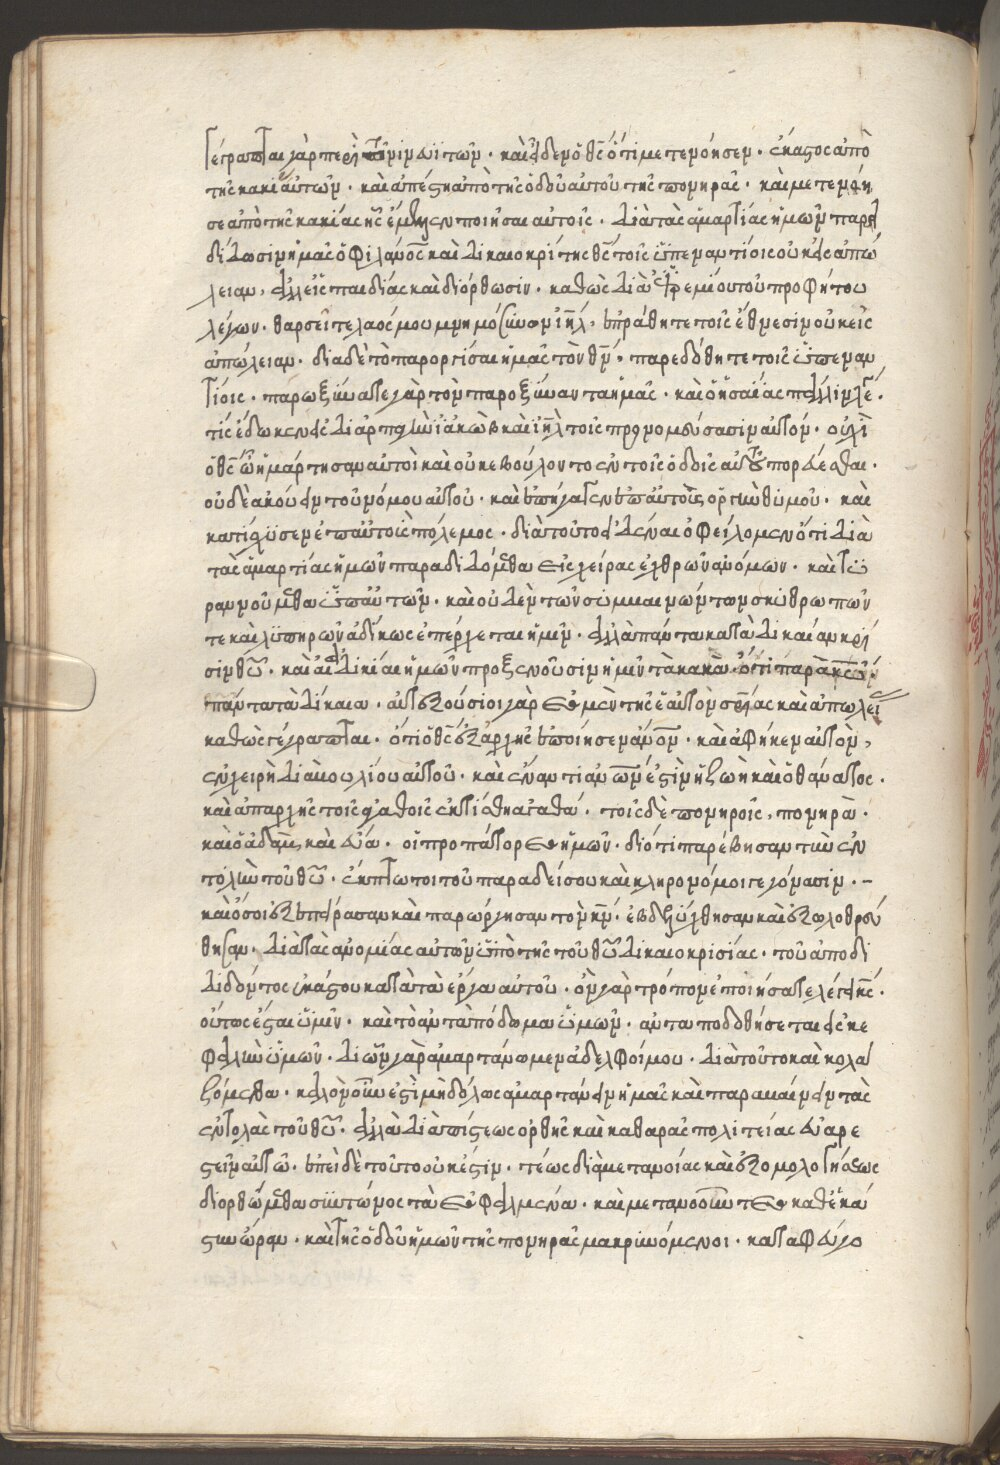 Γέγραπται γὰρ περὶ τῶν νινευϊτῶν· καὶ εἶδεν ὁ θς ὅτι μετενόησεν· ἕκαστος ἀπὸ
τῆς κακίας αὐτῶν· καὶ ἀπέστη ἀπὸ τῆς ὁδοῦ αὐτοῦ τῆς πονηρᾶς· καὶ μετενόη
σε ἀπὸ τῆς κακίας ἧς ἔμελλεν ποιῆσαι αὐτοῖς· διὰ τὰς ἁμαρτίας ἡμῶν παρα
δίδωσιν ἡμᾶς ὁ φιλανος καὶ δικαιοκρίτης θς τοῖς ὑπεναντίοις οὐκ εἰς ἀπώ
λειαν, ἀλλ' εἰς παιδίας καὶ διόρθωσιν· καθὼς διὰ ἱερεμίου τοῦ προφήτου
λέγων· θαρσεῖτε λαός μου μνημόσυνον ιηλ, ἐπράθητε τοῖς ἔθνεσιν οὐκ εἰς
ἀπώλειαν· διὰ δὲ τὸ παροργίσαι ἡμᾶς τὸν θν, παρεδόθητε τοῖς ὑπεναν
τίοις· παρωξύνατε γὰρ τὸν παροξύναντα ἡμᾶς· καὶ ὁ ἡσαΐας πάλιν λέγει·
τίς ἔδωκεν εἰς διαρπαγὴν ἰακὼβ καὶ ιηλ τοῖς προνομεύσασιν αὐτόν· οὐχὶ
ὁ θς ᾧ ἡμάρτησαν αὐτοὶ καὶ οὐκ ἐβούλοντο ἐν τοῖς ὁδοῖς αὐτοῦ πορεύεσθαι·
οὐδὲ ἀκούειν τοῦ νόμου αὐτοῦ· καὶ ἐπήγαγεν ἐπ' αὐτοὺς ὀργὴν θυμοῦ· καὶ
κατίσχυσεν ἐπ' αὐτοὺς πόλεμος· διὰ τοῦτο εἰδέναι ὀφείλομεν ὅτι διὰ
τὰς ἁμαρτίας ἡμῶν παραδιδόμεθα εἰς χεῖρας ἐχθρῶν ἀνόμων· καὶ τυ
ραννούμεθα ὑπ' αὐτῶν· καὶ οὐδὲν τῶν συμβαινόντων σκυθρωπῶν
τε καὶ λυπηρῶν ἀδίκως ἐπέρχεται ἡμῖν· ἀλλὰ πάντα κατὰ δικαίαν κρί
σιν θυ· καὶ αἱ ἀδικίαι ἡμῶν προξενοῦσιν ἡμῖν τὰ κακά· ὅτι παρὰ κυ
πάντα τὰ δίκαια· αὐτεξούσιοι γὰρ ἐσμὲν τῆς ἑαυτῶν σριας καὶ ἀπωλεί
καθὼς γέγραπται· ὅτι ὁ θς ἐξ ἀρχῆς ἐποίησεν ανον· καὶ ἀφῆκεν αὐτὸν,
ἐν χειρὶ διαβουλίου αὐτοῦ· καὶ ἐναντι ανων ἐστὶν ἡ ζωὴ καὶ ὁ θάνατος·
καὶ ἀπαρχῆς τοῖς ἀγαθοῖς ἔκτισθη ἀγαθά· τοῖς δὲ πονηροῖς, πονηρά·
καὶ ὁ ἀδὰμ, καὶ εὔα· οἱ προπάτορες ἡμῶν· διότι παρέβησαν τὴν ἐν
τολὴν τοῦ θυ· ἔκπτωτοι τοῦ παραδείσου καὶ κληρονόμοι γεγόνασιν·–
καὶ ὅσοις ἐξεπέρασαν καὶ παρώργησαν τὸν κν· ἐβδελύχθησαν καὶ ἐξωλοθρεύ
θησαν· διὰ τὰς ἀνομίας αὐτῶν ὑπὸ τῆς τοῦ θυ δικαιοκρισίας· τοῦ ἀποδι
διδόντος ἑκάστου κατὰ τὰ ἔργα αὐτοῦ· ὃν γὰρ τρόπον ἐποιήσατε λέγει κς·
οὕτως ἔσται ὑμῖν· καὶ τὸ ἀνταπόδομα ὑμῶν· ἀνταποδοθήσεται εἰς κε
φαλὴν ὑμῶν· δι' ὧν γὰρ ἁμαρτάνωμεν ἀδελφοί μου· διὰ τοῦτο καὶ κολα
ζόμεθα· καλὸν οὖν ἐστὶ μηδόλως ἁμαρτάνειν ἡμᾶς καὶ παραβαίνειν τὰς
ἐντολὰς τοῦ θυ· ἀλλὰ διὰ πίστεως ὀρθῆς καὶ καθαρᾶς πολιτείας εὐαρε
στεῖν αὐτῷ· ἐπεὶ δὲ τοῦτο οὐκ ἔστιν· τέως διὰ μετανοίας καὶ ἐξομολογήσεως
διορθώμεθα συντόμος τὰ ἐσφαλμένα· καὶ μετανοοῦντες καθ' ἑκά
στην ὥραν· καὶ τῆς ὁδοῦ ἡμῶν τῆς πονηρᾶς μακρυνόμενοι· καταφεύγο